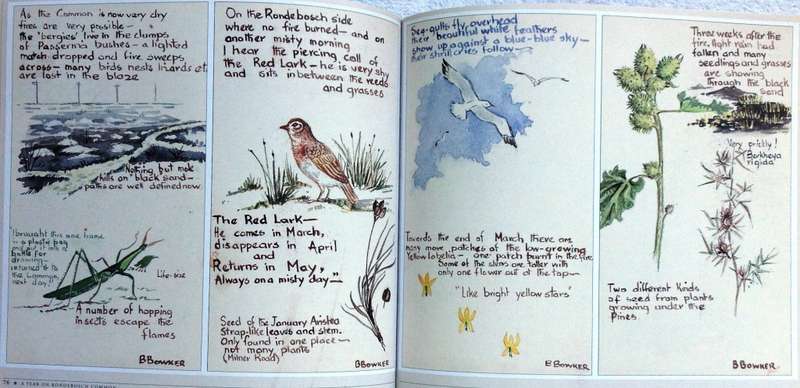 As the Common is now very dry
fires are very possible—
the 'bergies' live in the clumps
of Passerina bushes— a lighted
match dropped and fire sweeps
across— many birds nests lizards etc
are lost in the blaze
Nothing but mole
hills on black sand—
paths are well defined now
I brought this one home
in a plastic bag
and put it into a
bottle for
drawing—
returned to
the Common
next day!
Life-size
A number of hopping
insects escape the
flames
B BOWKER
76 A YEAR ON RONDEBOSCH COMMON
On the Rondebosch side
where no fire burned— and on
another misty morning
I hear the piercing call of
the Red Lark— he is very shy
and sits inbetween the reeds
and grasses
The Red Lark—
He comes in March,
disappears in April
and
Returns in May,
Always on a misty day—"
Seed of the January Aristea
Strap-like leaves and stem.
Only found in one place—
not many plants
(Milner Road)
B BOWKER
Sea-gulls fly overhead
their beautiful white feathers
show up against a blue-blue sky—
their shrill cries follow—
Towards the end of March there are
many more patches of the low-growing
Yellow lobelia— one patch burnt in the fire
Some of the stems are taller with
only one flower out at the top—
"Like bright yellow stars"
B BOWKER
Three weeks after the
fire, light rain had
fallen and many
seedlings and grasses
are showing
through the black
sand
Very prickly!
Berkheya
rigida
Two different kinds
of seed from plants
growing under the
Pines
B BOWKER